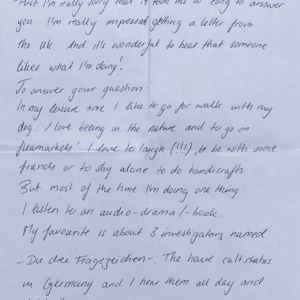 -But I'm really sorry that it took me so long to answer
you. I'm really impressed getting a letter from
the UK. And it's wonderful to hear that someone
likes what I'm doing!
To answer your question:
In my leisure time I like to go for walk with my
dog. I love being in the nature and to go on
fleamarkets! I love to laugh (!!!), to be with some
friends or to stay alone to do handicrafts.
But most of the time I'm doing one thing:
I listen to an audio-drama/-book.
My favourite is about 3 investigators named
-Die drei Fragezeichen-. The have cultstatus
in Germany and I hear them all day and